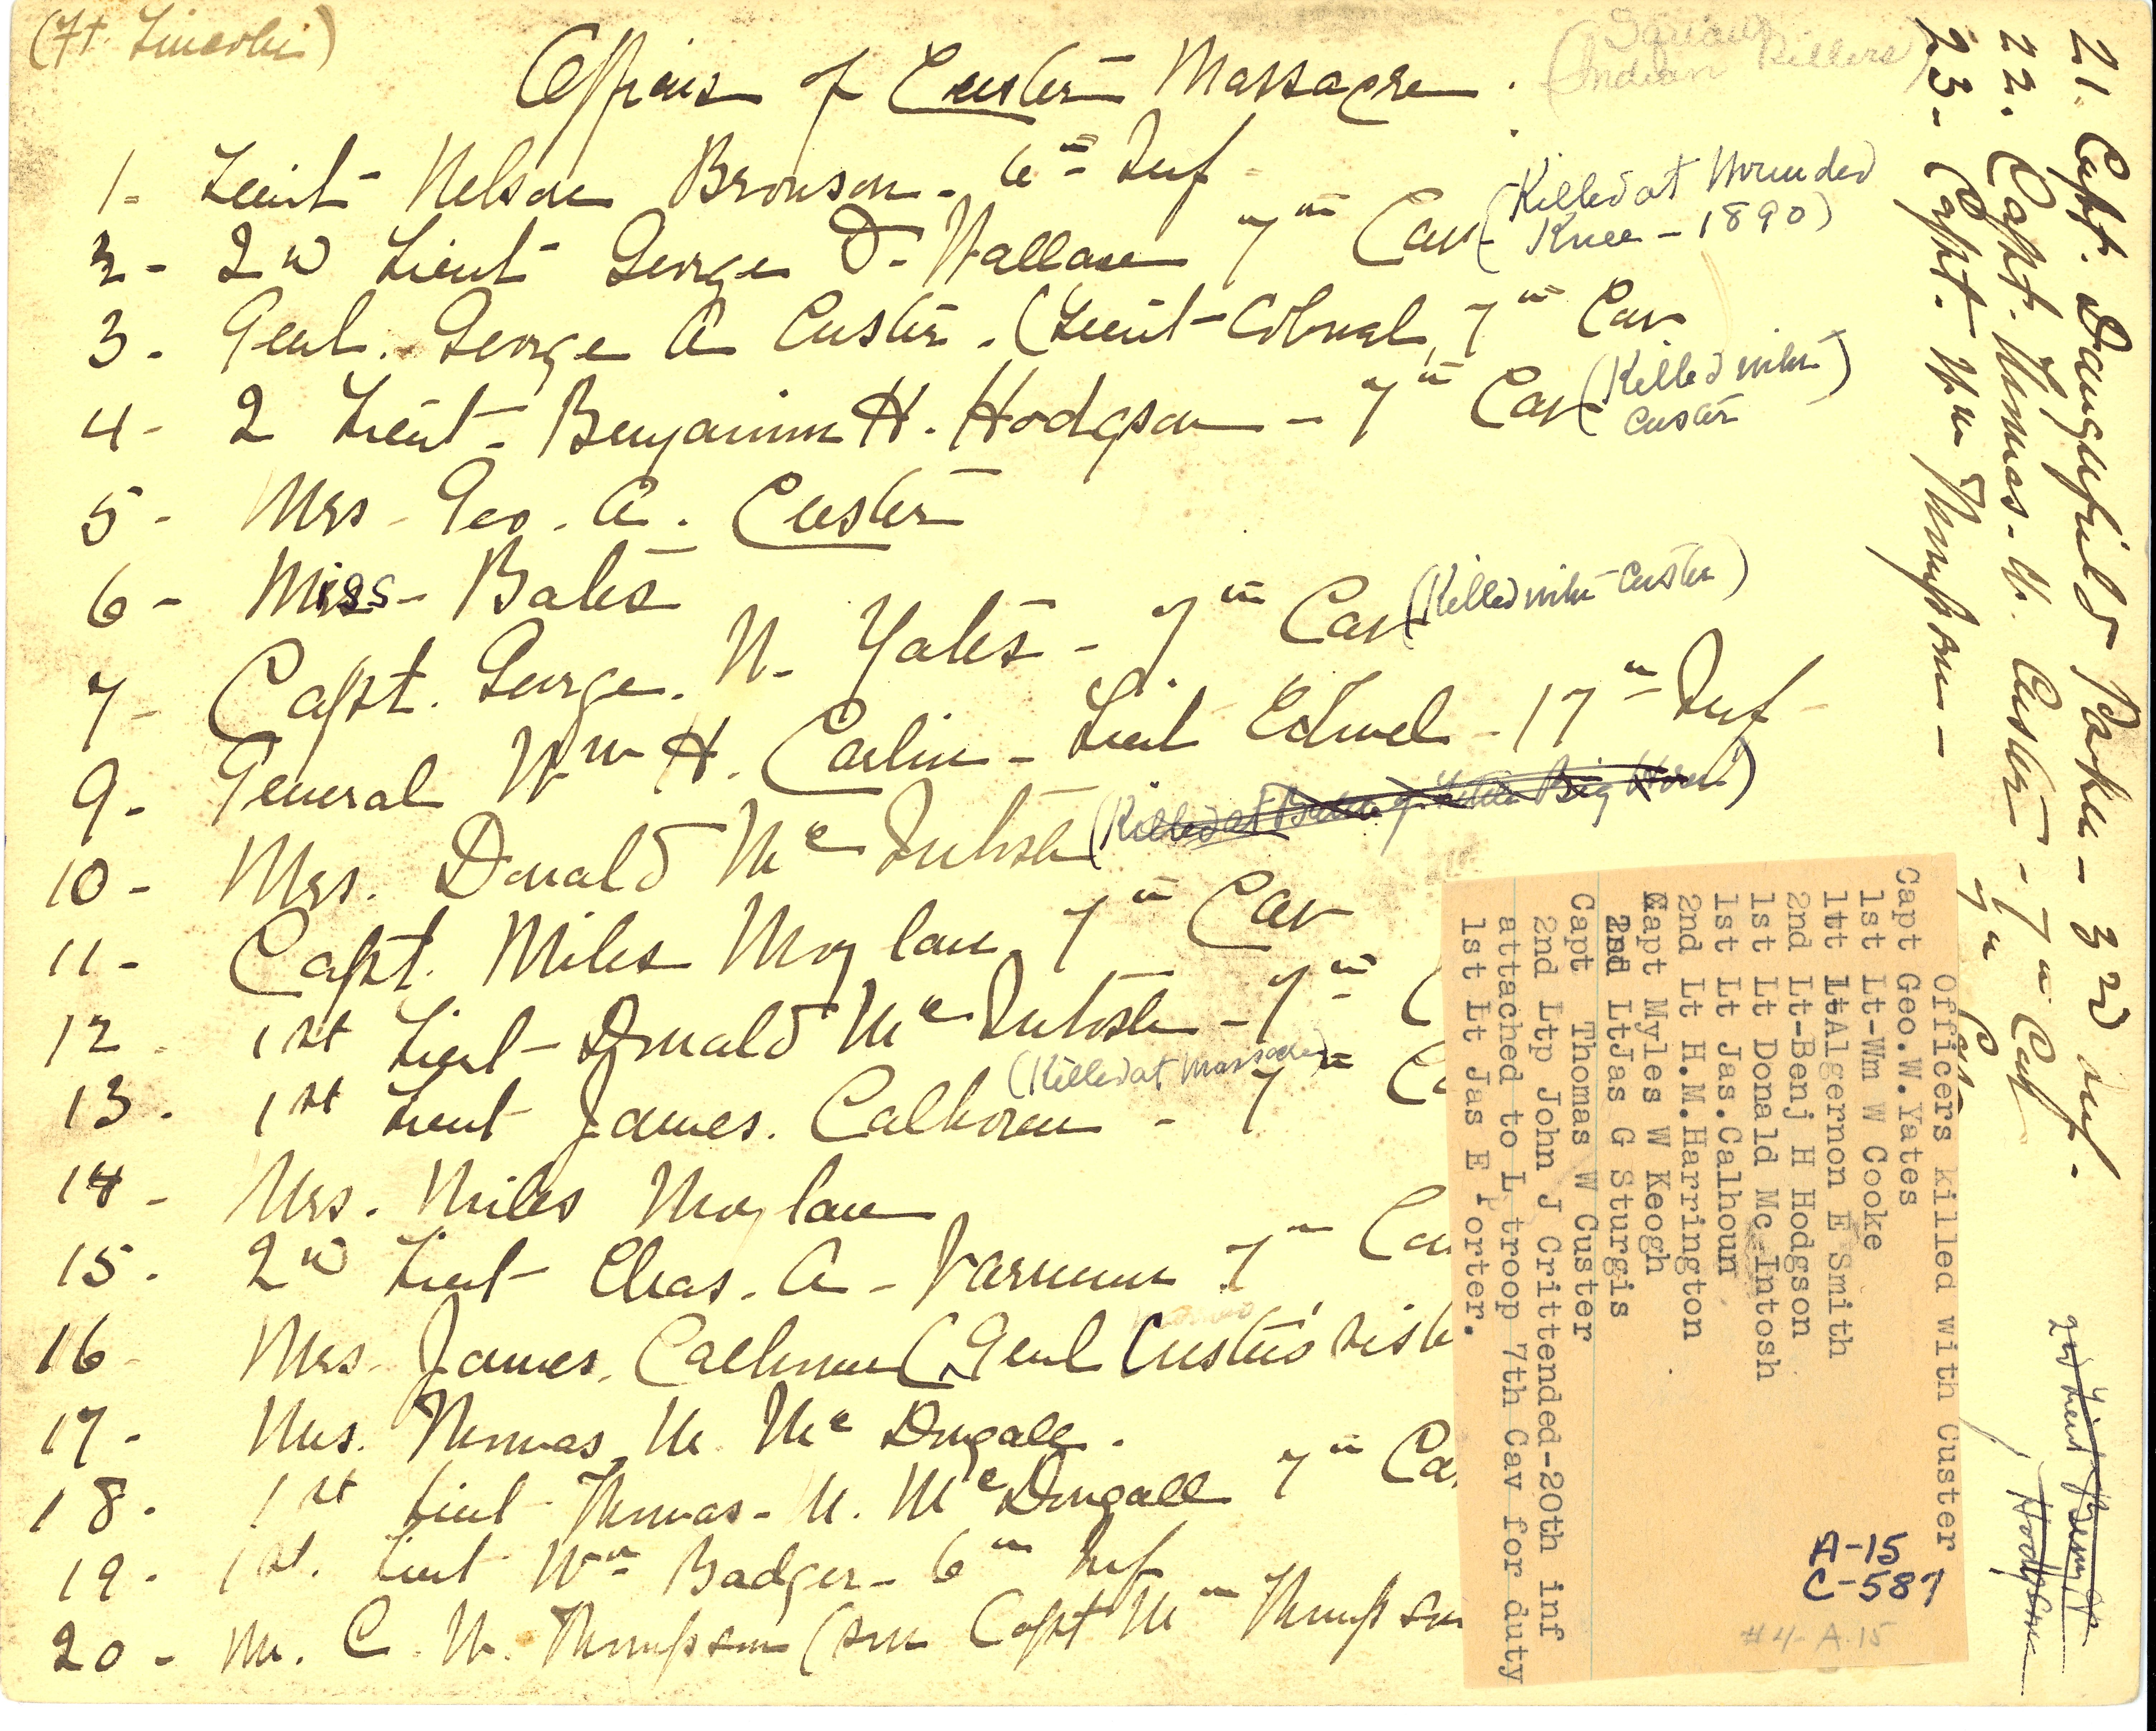 (Ft. Lincoln)
Officers of Custer Massacre.
(Indian Killers)
1- Lieut Nelson Bronson - 6th Inf -
2- 2nd Lieut George D. Wallace 7th Cav (Killed at Wounded
Knee - 1890)
3- Genl. George A Custer - (Lieut-Colonel, 7th Cav.
4- 2 Lieut - Benjamin H. Hodgson - 7th Cav (Killed with
Custer)
5- Mrs - Geo. A. Custer
6- Miss - Bates
7- Capt. George. W. Yates - 7th Cav (Killed with Custer)
9- General Wm H. Carlin - Lieut Colonel - 17th Inf -
10- Mrs. Donald McIntosh (Killed at Battle of Little Big Horn)
11- Capt. Miles Moylan 7th Cav
12- 1st Lieut - Donald McIntosh - 7th C
(Killed at Massacre)
13- 1st Lieut James. Calhoun - 7th Ca
14- Mrs. Miles Moylan
15- 2nd Lieut Chas. A - Varnum 7th Cav
16- Mrs. James. Calhoun (Genl Custer's sist
17- Mrs. Thomas M. McDugall.
18- 1st Lieut Thomas - M. McDougall 7th Ca
19- 1st. Lieut Wm Badger - 6th Inf
20- Mr. C. W. Thompson (son Capt Wm Thompson
21. Capt. Daingerfield Parker - 3rd Inf.
22. Capt. Thomas - W. Custer - 7th Cav
23- Capt. Wm Thompson - 7th Cav
Officers killed with Custer
Capt Geo.W.Yates
1st Lt-Wm W Cooke
1tt LtAlgernon E Smith
2nd Lt-Benj H Hodgson
1st Lt Donald Mc Intosh
1st Lt Jas.Calhoun
2nd Lt H.M.Harrington
Capt Myles W Keogh
2nd LtJas G Sturgis
Capt Thomas W Custer
2nd Ltp John J Crittended-20th inf
attached to L troop 7th Cav for duty
1st Lt Jas E Porter.
A-15
C-587
#4-A.15
2nd Lieut Benj H
Hodgson